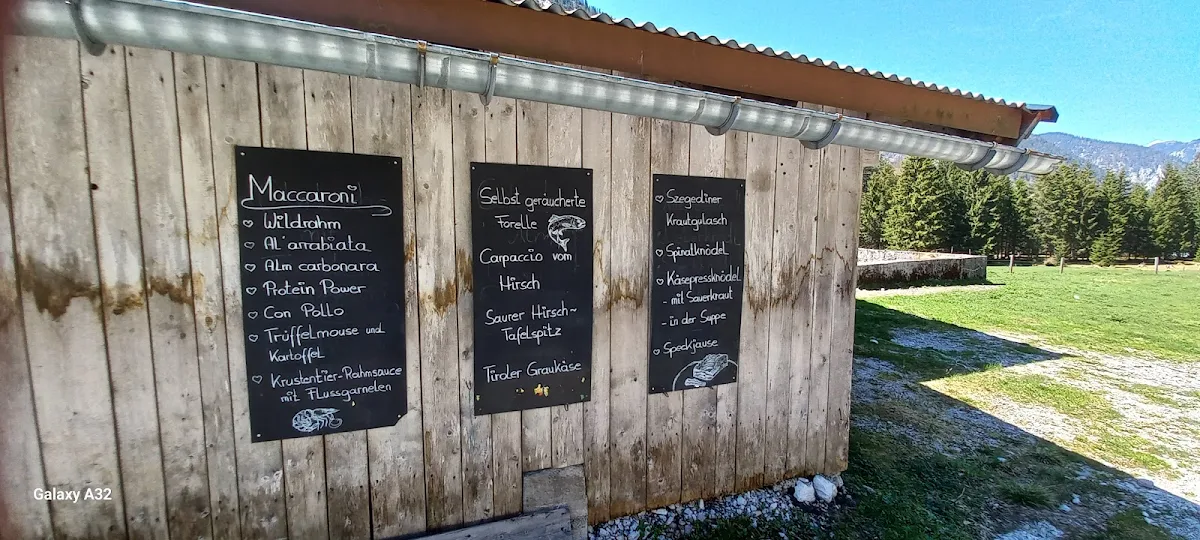 Maccaroni
♡ Wildrahm
♡ Al'arrabiata
♡ Alm carbonara
♡ Protein Power
♡ Con Pollo
♡ Trüffelmouse und
Kartoffel
♡ Krustentier-Rahmsauce
mit Flussgarnelen
Selbst geräucherte
Forelle
Carpaccio vom
Hirsch
Saurer Hirsch~
Tafelspitz
Tiroler Graukäse
♡ Szegediner
Krautgulasch
♡ Spinatknödel
♡ Käsepressknödel
- mit Sauerkraut
- in der Suppe
♡ Speckjause
Galaxy A32